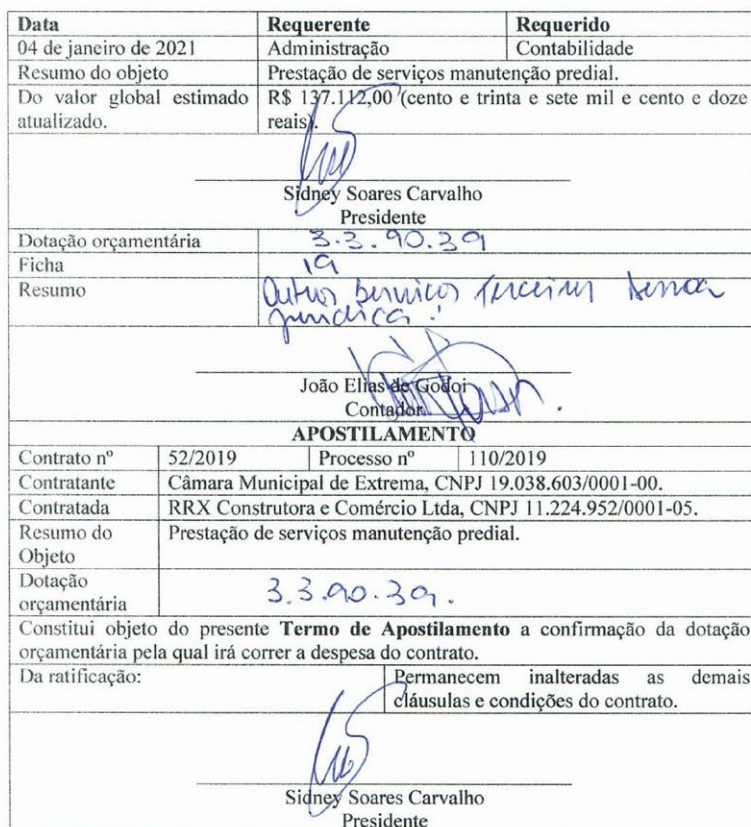 Data Requerente Requerido
04 de janeiro de 2021 Administração Contabilidade
Resumo do objeto Prestação de serviços manutenção predial.
Do valor global estimado R$ 137.112,00 (cento e trinta e sete mil e cento e doze
atualizado. reais).
Sidney Soares Carvalho
Presidente
Dotação orçamentária 3.3.90.39
Ficha 19
Resumo Outros Serviços Terceiros Pessoa
jurídica.
João Elias de Godoi
Contador
APOSTILAMENTO
Contrato nº 52/2019 Processo nº 110/2019
Contratante Câmara Municipal de Extrema, CNPJ 19.038.603/0001-00.
Contratada RRX Construtora e Comércio Ltda, CNPJ 11.224.952/0001-05.
Resumo do Prestação de serviços manutenção predial.
Objeto
Dotação
orçamentária 3.3.90.39.
Constitui objeto do presente Termo de Apostilamento a confirmação da dotação
orçamentária pela qual irá correr a despesa do contrato.
Da ratificação: Permanecem inalteradas as demais
cláusulas e condições do contrato.
Sidney Soares Carvalho
Presidente